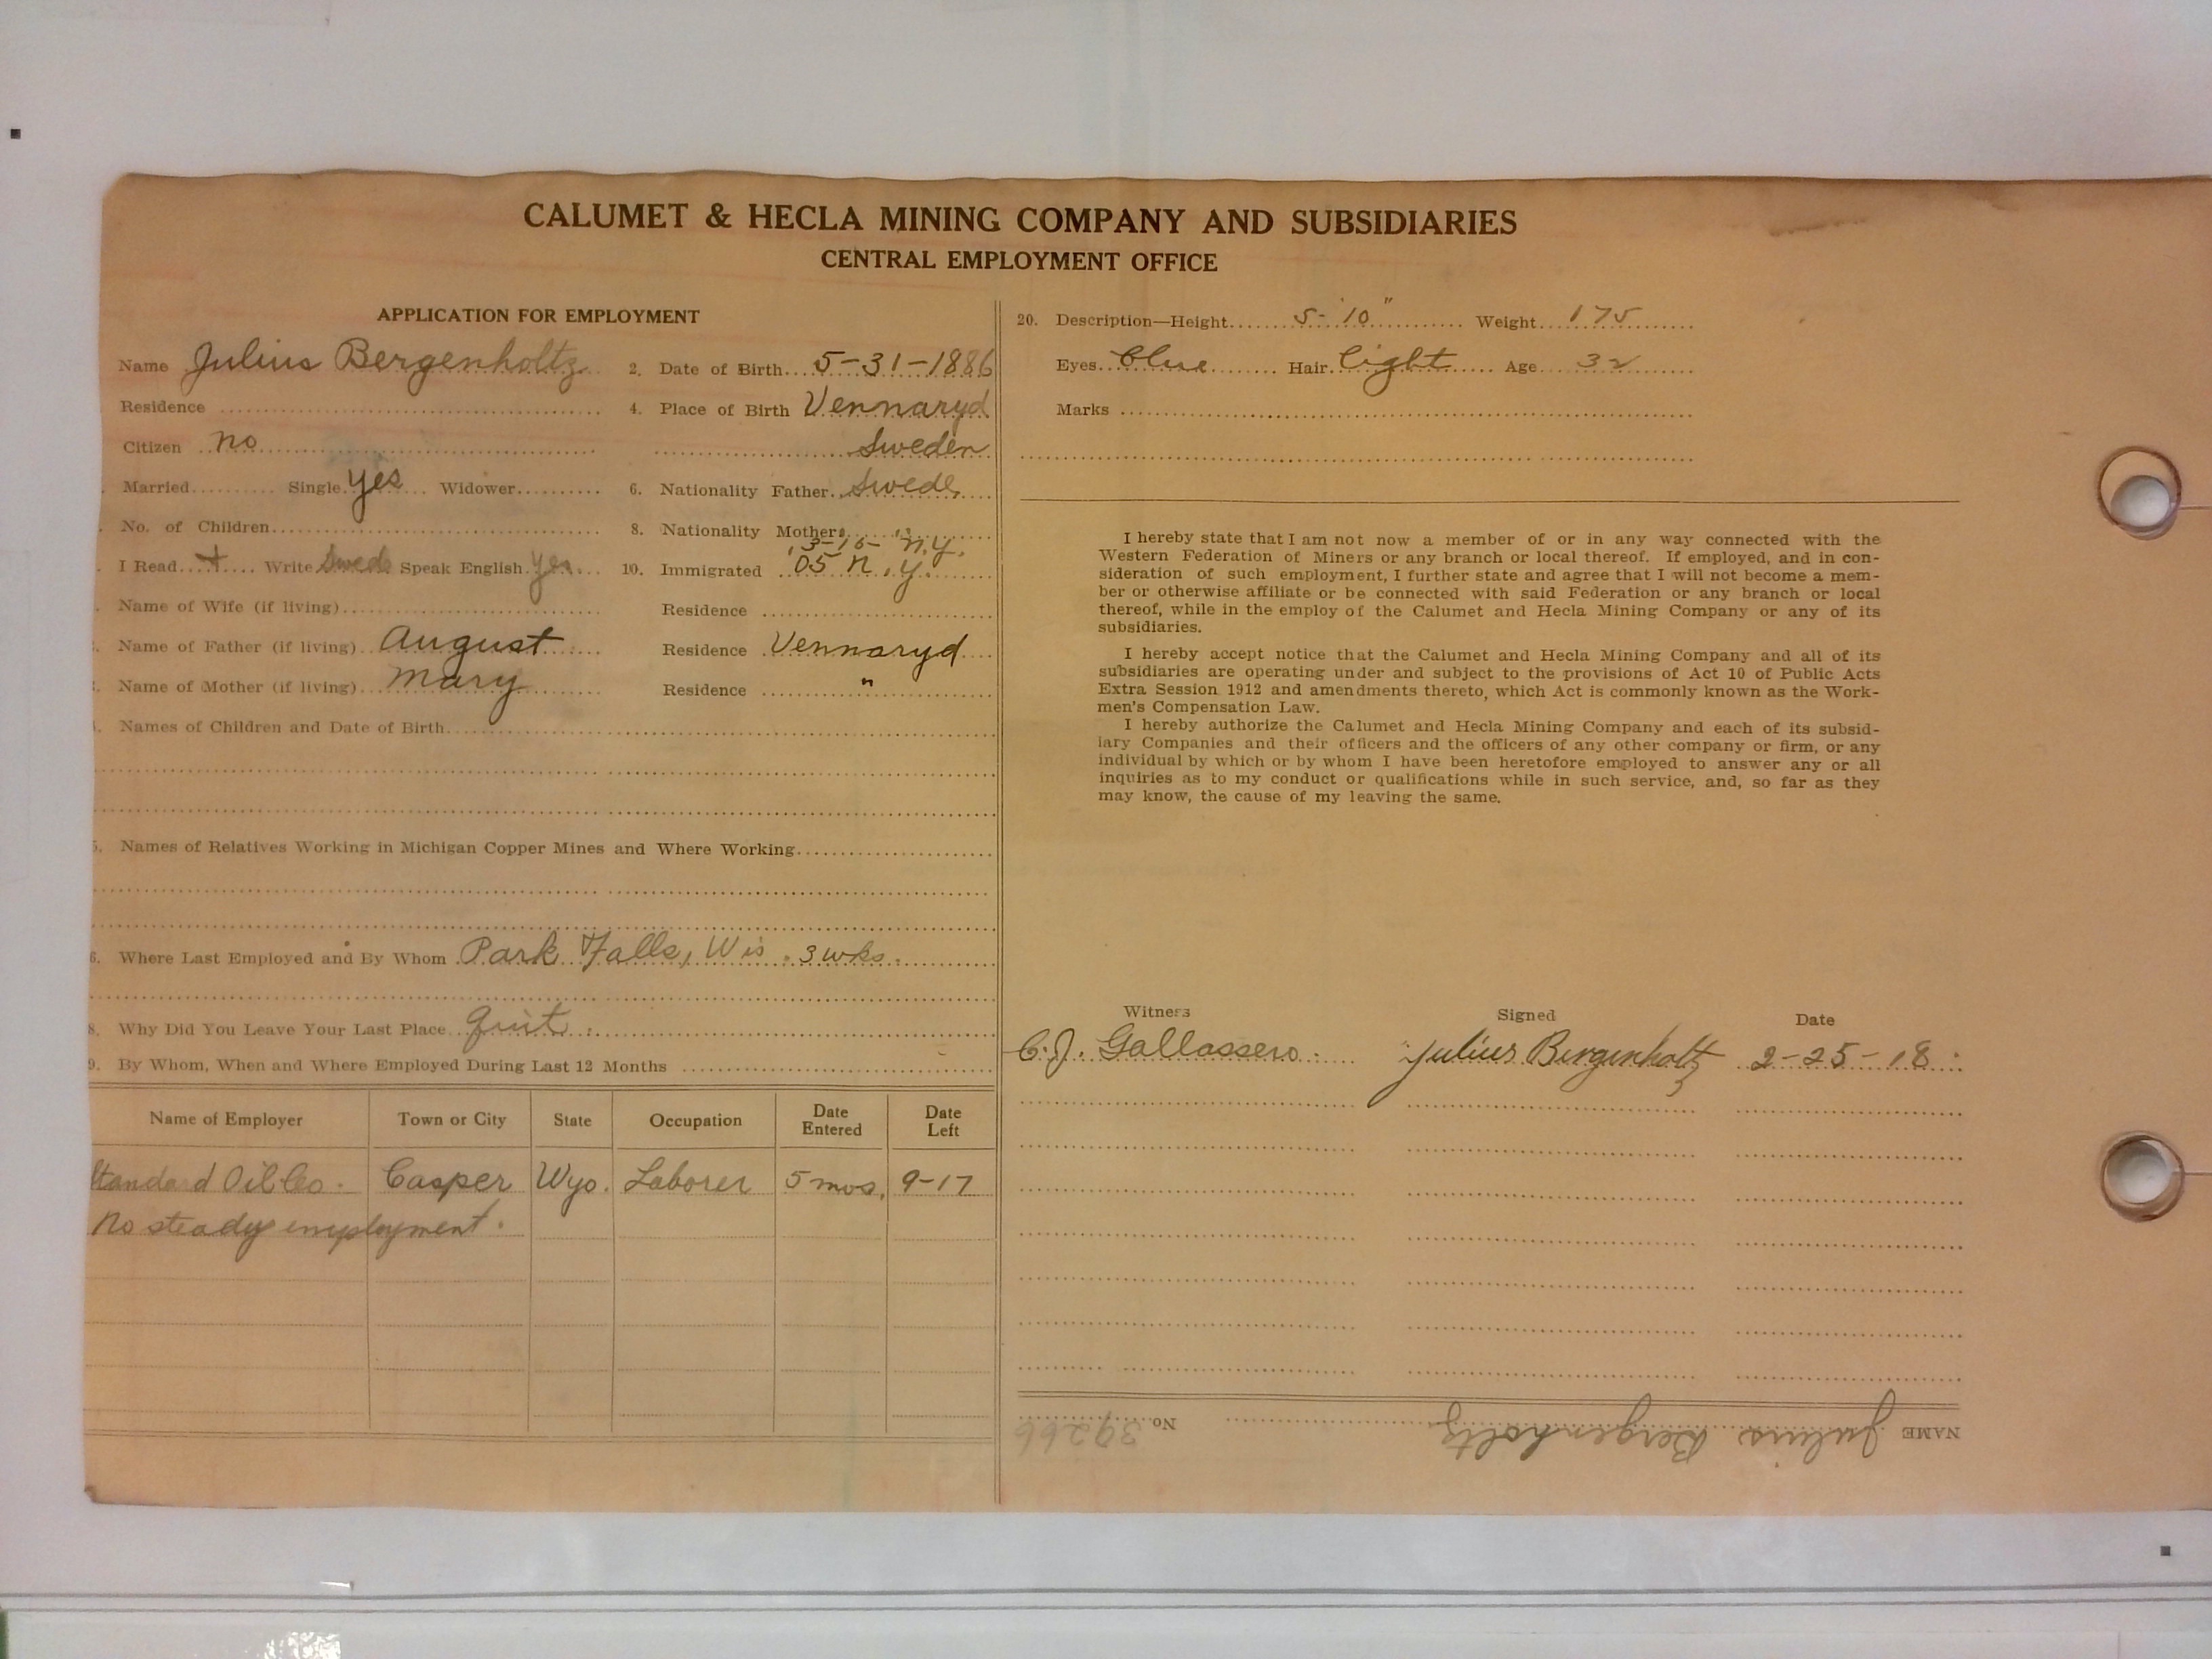 CALUMET & HECLA MINING COMPANY AND SUBSIDIARIES
CENTRAL EMPLOYMENT OFFICE
APPLICATION FOR EMPLOYMENT
Name Julius Bergenholtz 2. Date of Birth 5-31-1886
Residence 4. Place of Birth Vennaryd
Citizen no Sweden
Married Single yes Widower 6. Nationality Father Swede
No. of Children 8. Nationality Mother "
'3-16- N.Y.
I Read + Write Swede Speak English yes 10. Immigrated '05 N.Y.
Name of Wife (if living) Residence
Name of Father (if living) August Residence Vennaryd
Name of Mother (if living) Mary Residence "
Names of Children and Date of Birth
5. Names of Relatives Working in Michigan Copper Mines and Where Working
6. Where Last Employed and By Whom Park Falls, Wis. 3 wks.
8. Why Did You Leave Your Last Place Quit.
9. By Whom, When and Where Employed During Last 12 Months
Name of Employer Town or City State Occupation Date Entered Date Left
Standard Oil Co. Casper Wyo. Laborer 5 mos. 9-17
No steady employment.
20. Description—Height 5-'10" Weight 175
Eyes blue Hair light Age 32
Marks
I hereby state that I am not now a member of or in any way connected with the
Western Federation of Miners or any branch or local thereof. If employed, and in con-
sideration of such employment, I further state and agree that I will not become a mem-
ber or otherwise affiliate or be connected with said Federation or any branch or local
thereof, while in the employ of the Calumet and Hecla Mining Company or any of its
subsidiaries.
I hereby accept notice that the Calumet and Hecla Mining Company and all of its
subsidiaries are operating under and subject to the provisions of Act 10 of Public Acts
Extra Session 1912 and amendments thereto, which Act is commonly known as the Work-
men's Compensation Law.
I hereby authorize the Calumet and Hecla Mining Company and each of its subsid-
iary Companies and their officers and the officers of any other company or firm, or any
individual by which or by whom I have been heretofore employed to answer any or all
inquiries as to my conduct or qualifications while in such service, and, so far as they
may know, the cause of my leaving the same.
Witness Signed Date
C.J. Gallassero. Julius Bergenholtz 2-25-18.
NAME Julius Bergenholtz No. 39266